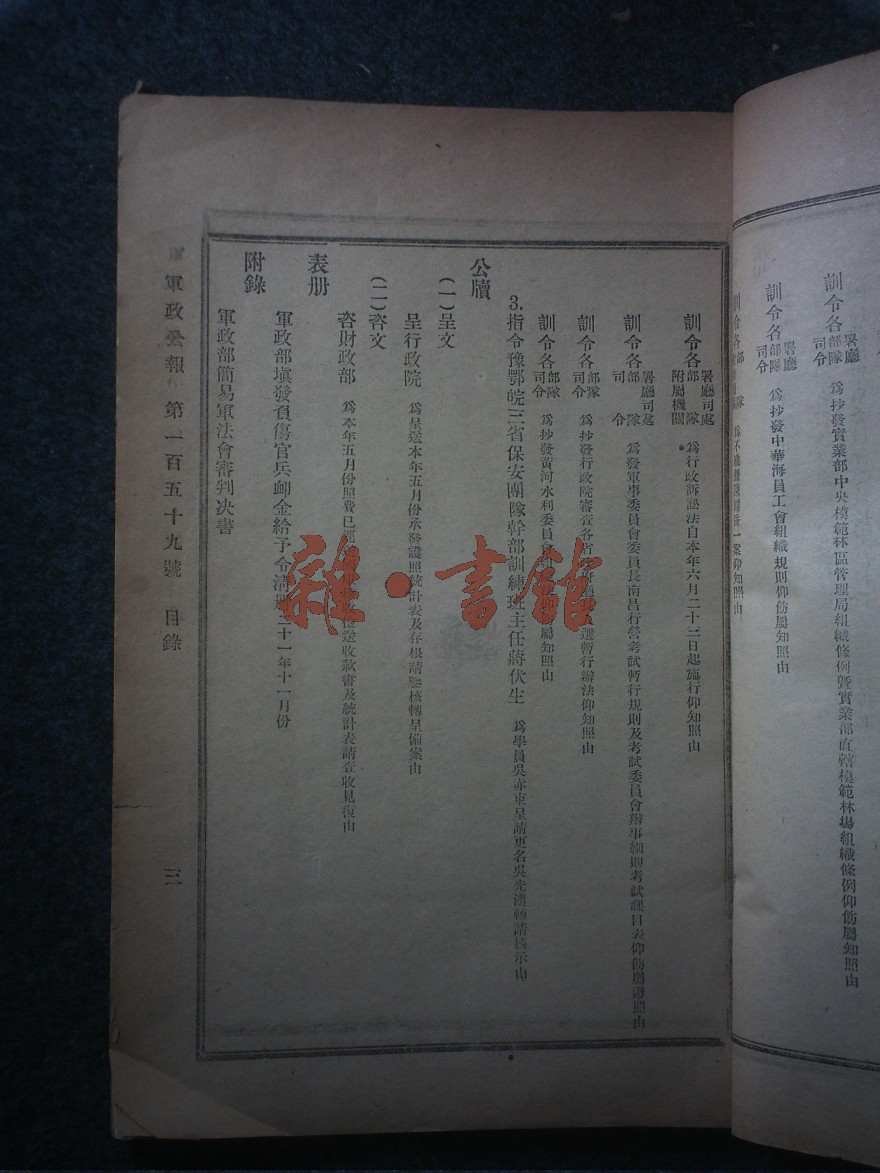 署廳
訓令各部隊 為抄發實業部中央模範林區管理局組織條例暨實業部直轄模範林場組織條例仰飭屬知照由
司令
署廳
訓令各部隊 為抄發中華海員工會組織規則仰飭屬知照由
司令
訓令各部隊 一案仰知照由
署廳司處
訓令各部隊 為行政訴訟法自本年六月二十三日起施行仰知照由
附屬機關
署廳司處
訓令各部隊 為發軍事委員會委員長南昌行營考試暫行規則及考試委員會辦事細則考試課目表仰飭屬遵照由
司令
訓令各部隊司令 為抄發行政院審查各省 選暫行辦法仰知照由
訓令各部隊司令 為抄發黃河水利委員會 屬知照由
3.指令豫鄂皖三省保安團隊幹部訓練班主任蔣伏生 為學員吳亦東呈請更名吳光漢轉請核示由
公牘
(一)呈文
呈行政院 為呈送本年五月份承發護照統計表及存根請鑒核轉呈備案由
(二)咨文
咨財政部 為本年五月份照費已 送收款書及統計表請查收見復由
表册
軍政部填發負傷官兵卹金給予令清册 二十一年十一月份
附錄
軍政部簡易軍法會審判决書
軍政公報 第一百五十九號 目錄
三
雜·書館